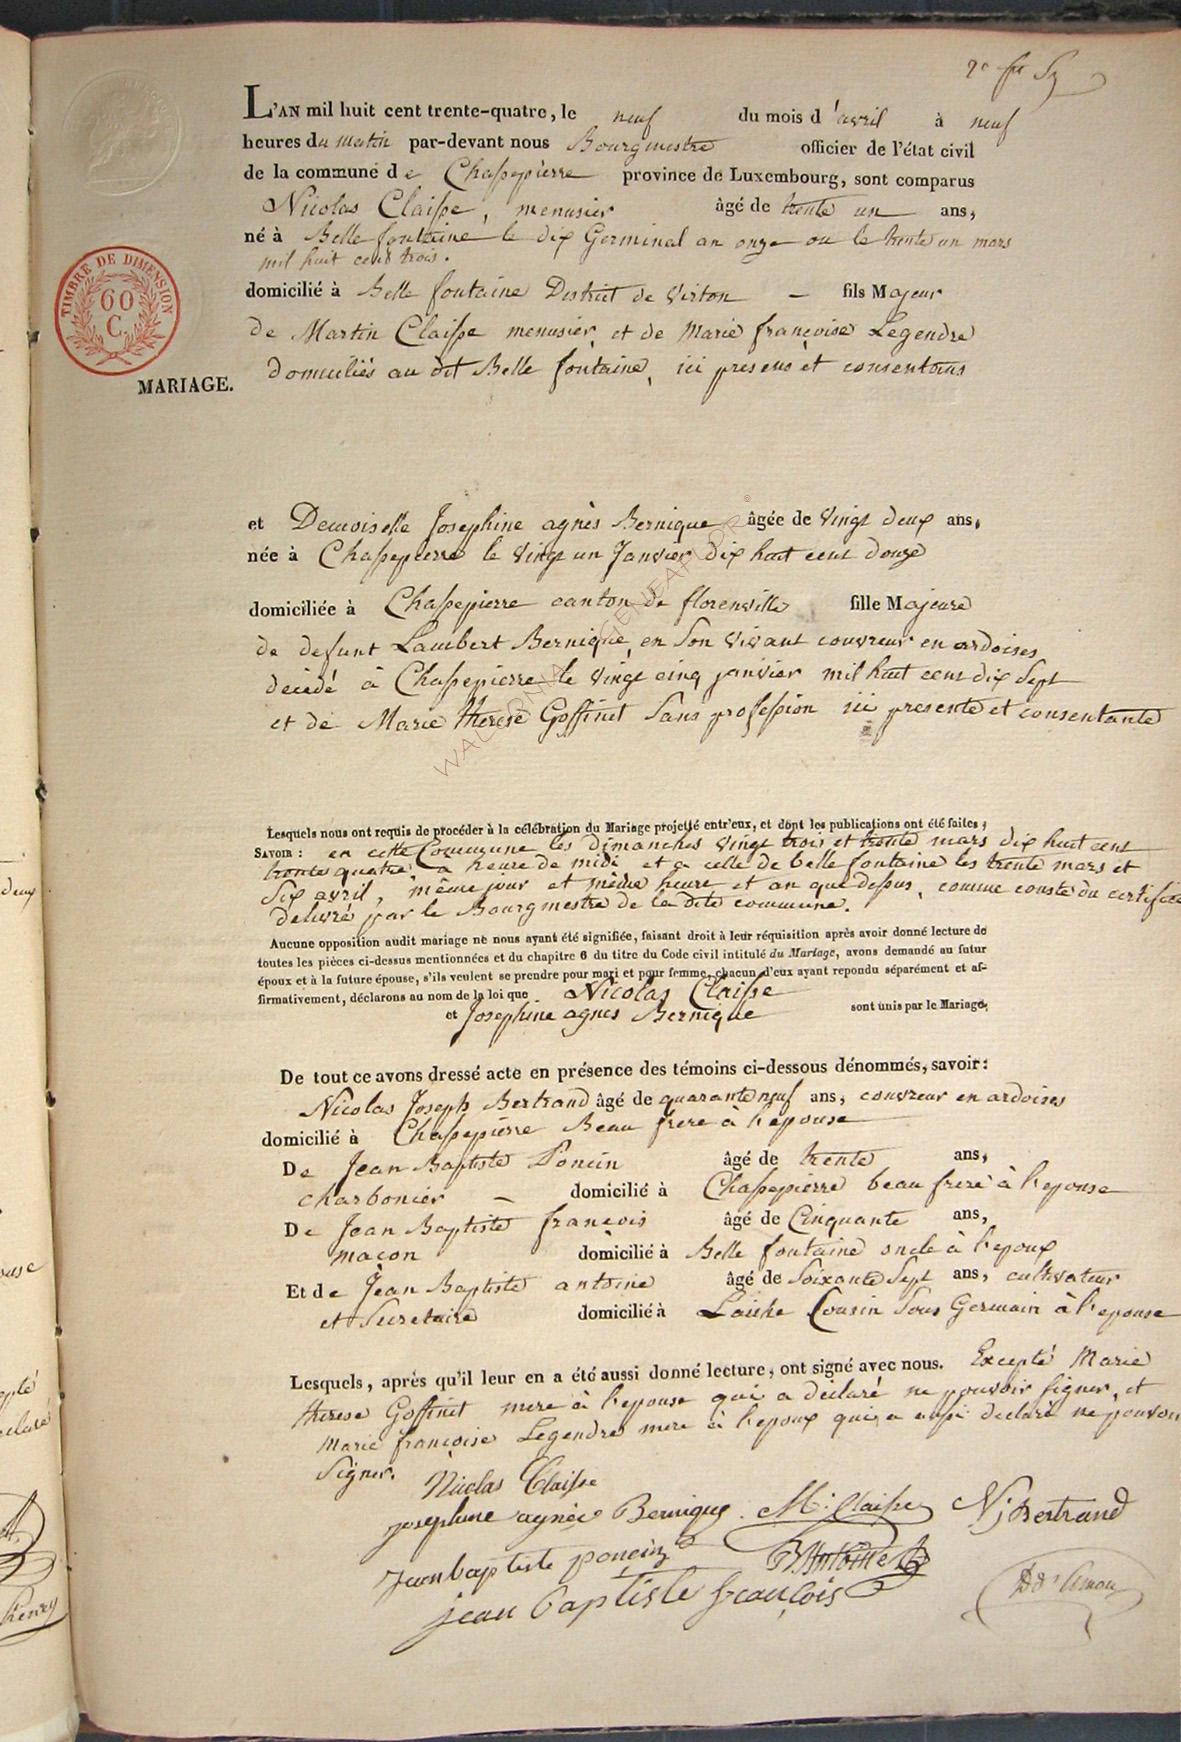 2e
L'AN mil huit cent trente-quatre, le neuf du mois d'avril à neuf
heures du matin par-devant nous Bourgmestre officier de l'état civil
de la commune de Chassepierre province de Luxembourg, sont comparus
Nicolas Claisse, menusier âgé de trente un ans,
né à Belle fontaine le dix Germinal an onze ou le trente un mars
mil huit cent trois.
TIMBRE DE DIMENSION
60
C.
domicilié à Belle fontaine District de Virton – fils Majeur
de Martin Claisse menusier, et de Marie françoise Legendre
MARIAGE.
Domiciliés au dit Belle fontaine, ici presens et consentans
et Demoiselle Josephine agnès Bernique âgée de Vingt deux ans,
née à Chassepierre le Vingt un Janvier dix huit cent douze
domiciliée à Chassepierre canton de florenville fille Majeure
de defunt Lambert Bernique, en Son Vivant couvreur en ardoises
décédé à Chassepierre le vingt cinq janvier mil huit cent dix Sept
et de Marie therese Goffinet Sans profession ici presente et consentante
WALLONIA GENEAPLOR ©
Lesquels nous ont requis de procéder à la célébration du Mariage projetté entr'eux, et dont les publications ont été faites;
SAVOIR : en cette Commune les dimanches vingt trois et trente mars dix huit cent
trente quatre, a heure de midi et a celle de belle fontaine les trente mars et
Six avril, même jour et même heure et an que dessus, comme conste du certificat
delivré par le Bourgmestre de la dite commune.
Aucune opposition audit mariage ne nous ayant été signifiée, faisant droit à leur réquisition après avoir donné lecture de
toutes les pièces ci-dessus mentionnées et du chapitre 6 du titre du Code civil intitulé du Mariage, avons demandé au futur
époux et à la future épouse, s'ils veulent se prendre pour mari et pour femme, chacun d'eux ayant repondu séparément et af-
firmativement, déclarons au nom de la loi que Nicolas Claisse
et Josephine agnes Bernique sont unis par le Mariage.
De tout ce avons dressé acte en présence des témoins ci-dessous dénommés, savoir:
Nicolas Joseph Bertrand âgé de quarante neuf ans, couvreur en ardoises
domicilié à Chassepierre Beau frere à l'epouse
De Jean Baptiste Poncin âgé de trente ans,
charbonier – domicilié à Chassepierre beau frere à l'epouse
De Jean Baptiste françois âgé de Cinquante ans,
maçon domicilié à Belle fontaine oncle à l'epoux
Et de Jean Baptiste antoine âgé de Soixante Sept ans, cultivateur
et Secretaire domicilié à Laiche Cousin Sous Germain à l'epouse
Lesquels, après qu'il leur en a été aussi donné lecture, ont signé avec nous. Excepté Marie
therese Goffinet mere à l'epouse qui a declaré ne pouvoir Signer, et
Marie françoise Legendre mere à l'epoux qui a aussi declaré ne pouvoir
Signer.
Nicolas Claisse
josephine agnès Bernique M. Claisse N j Bertrand
jean baptiste poncin Antoine
jean baptiste françois